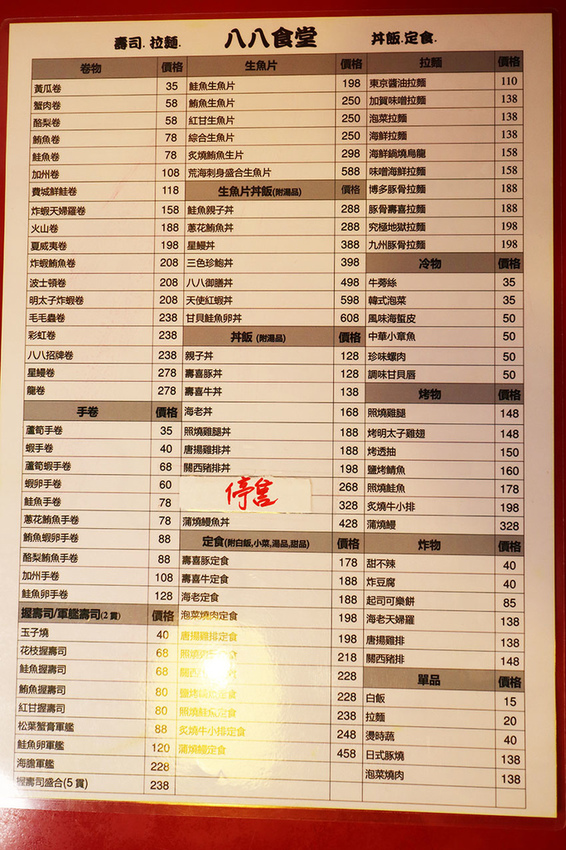 壽司.拉麵. 八八食堂 丼飯.定食.
卷物 價格
黃瓜卷 35
蟹肉卷 58
酪梨卷 58
鮪魚卷 78
鮭魚卷 78
加州卷 108
費城鮮鮭卷 118
炸蝦天婦羅卷 158
火山卷 188
夏威夷卷 198
炸蝦鮪魚卷 208
波士頓卷 208
明太子炸蝦卷 208
毛毛蟲卷 238
彩虹卷 238
八八招牌卷 238
星鰻卷 278
龍卷 278
手卷 價格
蘆筍手卷 35
蝦手卷 40
蘆筍蝦手卷 68
蝦卵手卷 60
鮭魚手卷 78
蔥花鮪魚手卷 78
鮪魚蝦卵手卷 88
酪梨鮪魚手卷 88
加州手卷 108
鮭魚卵手卷 128
握壽司/軍艦壽司(2貫) 價格
玉子燒 40
花枝握壽司 68
鮭魚握壽司 68
鮪魚握壽司 80
紅甘握壽司 80
松葉蟹膏軍艦 88
鮭魚卵軍艦 120
海膽軍艦 228
握壽司盛合(5貫) 238
生魚片 價格
鮭魚生魚片 198
鮪魚生魚片 250
紅甘生魚片 250
綜合生魚片 250
炙燒鮪魚生片 298
荒海刺身盛合生魚片 588
生魚片丼飯(附湯品) 價格
鮭魚親子丼 288
蔥花鮪魚丼 288
星鰻丼 388
三色珍鮑丼 398
八八御膳丼 498
天使紅蝦丼 598
甘貝鮭魚卵丼 608
丼飯 (附湯品) 價格
親子丼 128
壽喜豚丼 128
壽喜牛丼 138
海老丼 168
照燒雞腿丼 188
唐揚雞排丼 188
關西豬排丼 198
停售 268
328
蒲燒鰻魚丼 428
定食(附白飯,小菜,湯品,甜品) 價格
壽喜豚定食 178
壽喜牛定食 188
海老定食 188
泡菜燒肉定食 198
唐揚雞排定食 198
定食 218
定食 228
鹽烤鯖魚定食 228
照燒鮭魚定食 238
炙燒牛小排定食 248
蒲燒鰻定食 458
拉麵 價格
東京醬油拉麵 110
加賀味噌拉麵 138
泡菜拉麵 138
海鮮拉麵 138
海鮮鍋燒烏龍 158
味噌海鮮拉麵 158
博多豚骨拉麵 188
豚骨壽喜拉麵 188
究極地獄拉麵 198
九州豚骨拉麵 198
冷物 價格
牛蒡絲 35
韓式泡菜 35
風味海蜇皮 50
中華小章魚 50
珍味螺肉 50
調味甘貝唇 50
烤物 價格
照燒雞腿 148
烤明太子雞翅 148
烤透抽 150
鹽烤鯖魚 160
照燒鮭魚 178
炙燒牛小排 198
蒲燒鰻 328
炸物 價格
甜不辣 40
炸豆腐 40
起司可樂餅 85
海老天婦羅 138
唐揚雞排 138
關西豬排 148
單品 價格
白飯 15
拉麵 20
燙時蔬 40
日式豚燒 138
泡菜燒肉 138